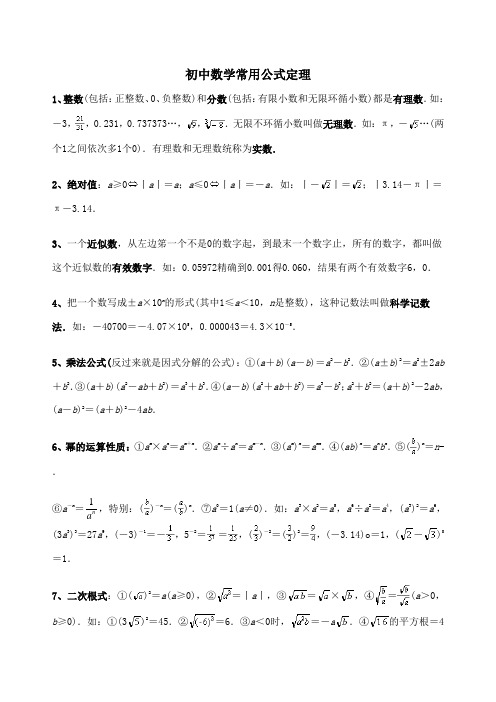 初中数学常用公式定理
1、整数(包括:正整数、0、负整数)和分数(包括:有限小数和无限环循小数)都是有理数.如:
-3,21/31,0.231,0.737373…,√9,∛-8.无限不环循小数叫做无理数.如:π,-√5…(两
个1之间依次多1个0).有理数和无理数统称为实数.
2、绝对值:a≥0⇔|a|=a;a≤0⇔|a|=-a.如:|-√2|=√2;|3.14-π|=
π-3.14.
3、一个近似数,从左边笫一个不是0的数字起,到最末一个数字止,所有的数字,都叫做
这个近似数的有效数字.如:0.05972精确到0.001得0.060,结果有两个有效数字6,0.
4、把一个数写成±a×10ⁿ的形式(其中1≤a<10,n是整数),这种记数法叫做科学记数
法.如:-40700=-4.07×10⁵,0.000043=4.3×10⁻⁵.
5、乘法公式(反过来就是因式分解的公式):①(a+b)(a-b)=a²-b².②(a±b)²=a²±2ab
+b².③(a+b)(a²-ab+b²)=a³+b³.④(a-b)(a²+ab+b²)=a³-b³;a²+b²=(a+b)²-2ab,
(a-b)²=(a+b)²-4ab.
6、幂的运算性质:①aᵐ×aⁿ=aᵐ⁺ⁿ.②aᵐ÷aⁿ=aᵐ⁻ⁿ.③(aᵐ)ⁿ=aᵐⁿ.④(ab)ⁿ=aⁿbⁿ.⑤(b/a)ⁿ=n-
.
⑥a⁻ⁿ=1/aⁿ,特别:(b/a)⁻ⁿ=(a/b)ⁿ.⑦a⁰=1(a≠0).如:a³×a²=a⁵,a⁶÷a²=a⁴,(a³)²=a⁶,
(3a³)³=27a⁹,(-3)⁻¹=-1/3,5⁻²=1/5²=1/25,(2/3)⁻²=(3/2)²=9/4,(-3.14)º=1,(√2-√3)⁰
=1.
7、二次根式:①(√a)²=a(a≥0),②√a²=|a|,③√ab=√a×√b,④√(b/a)=√b/√a(a>0,
b≥0).如:①(3√5)²=45.②√(-6)²=6.③a<0时,√a²b=-a√b.④√16的平方根=4